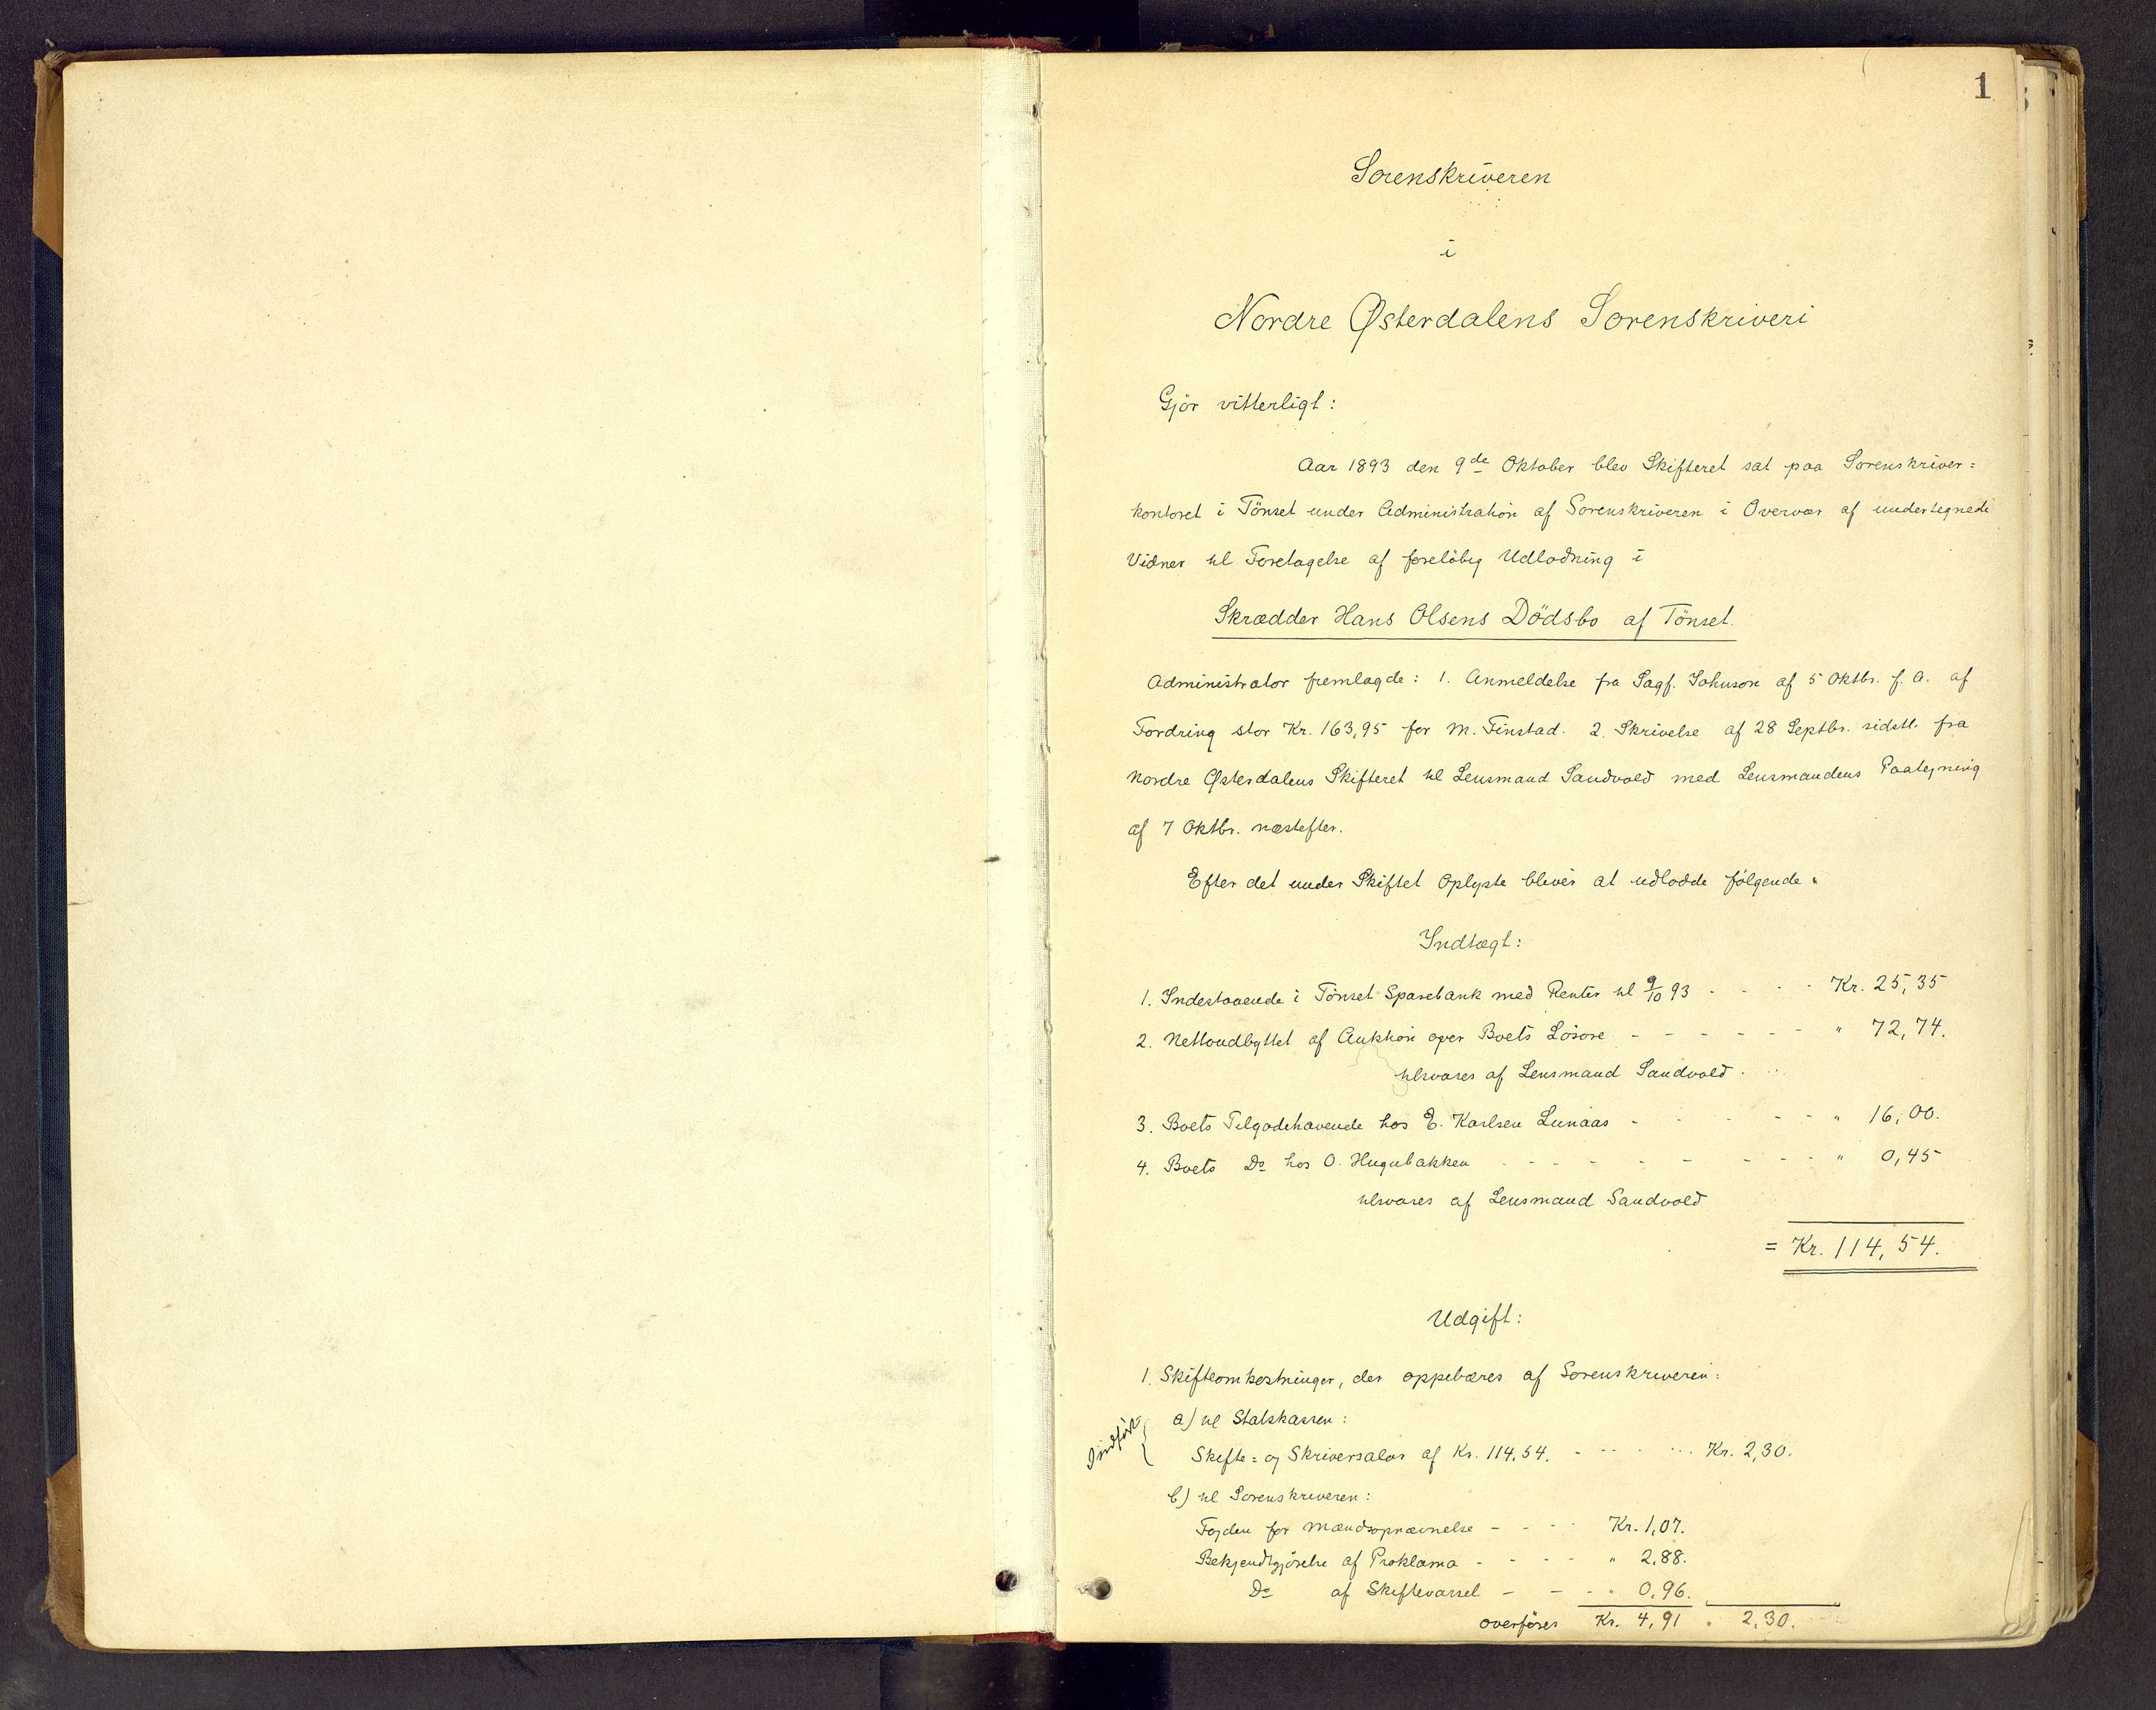 1
Sorenskriveren
i
Nordre Østerdalens Sorenskriveri
Gjör vitterligt:
Aar 1893 den 9de Oktober blev Skifteret sat paa Sorenskriver=
kontoret i Tönset under Administration af Sorenskriveren i Overvær af undertegnede
Vidner til Foretagelse af foreløbig Udlodning i
Skrædder Hans Olsens Dödsbo af Tönset.
Administrator fremlagde: 1. Anmeldelse fra Sagf. Johnson af 5 Oktbr. f. A. af
Fordring stor Kr. 163,95 for M. Finstad. 2. Skrivelse af 28 Septbr. sidstl. fra
Nordre Østerdalens Skifteret til Lensmand Sandvold med Lensmandens Paategning
af 7 Oktbr. næstefter.
Efter det under Skiftet Oplyste bliver at udlodde fölgende.
Indtægt:
1. Indestaaende i Tönset Sparebank med Renter til 9/10 93 - - - - Kr. 25,35
2. Nettoudbyttet af Auktion over Boets Lösöre - - - - - - - " 72,74.
tilsvares af Lensmand Sandvold.
3. Boets Tilgodehavende hos E. Karlsen Lunaas - - - - - " 16,00.
4. Boets Do hos O. Hugubakken - - - - - - - - - " 0,45
tilsvares af Lensmand Sandvold
= Kr. 114,54.
Udgift:
1. Skifteomkostninger, der oppebæres af Sorenskriveren:
a) til Statskassen:
Indfört { Skifte= og Skriversalær af Kr. 114.54. - - - - Kr. 2,30.
b) til Sorenskriveren:
Fogden for Mændsopnævnelse - - - - Kr. 1,07.
Bekjendtgjörelse af Proklama - - - - " 2,88.
Do af Skiftevarsel - - - " 0,96.
overföres Kr. 4,91 " 2,30.